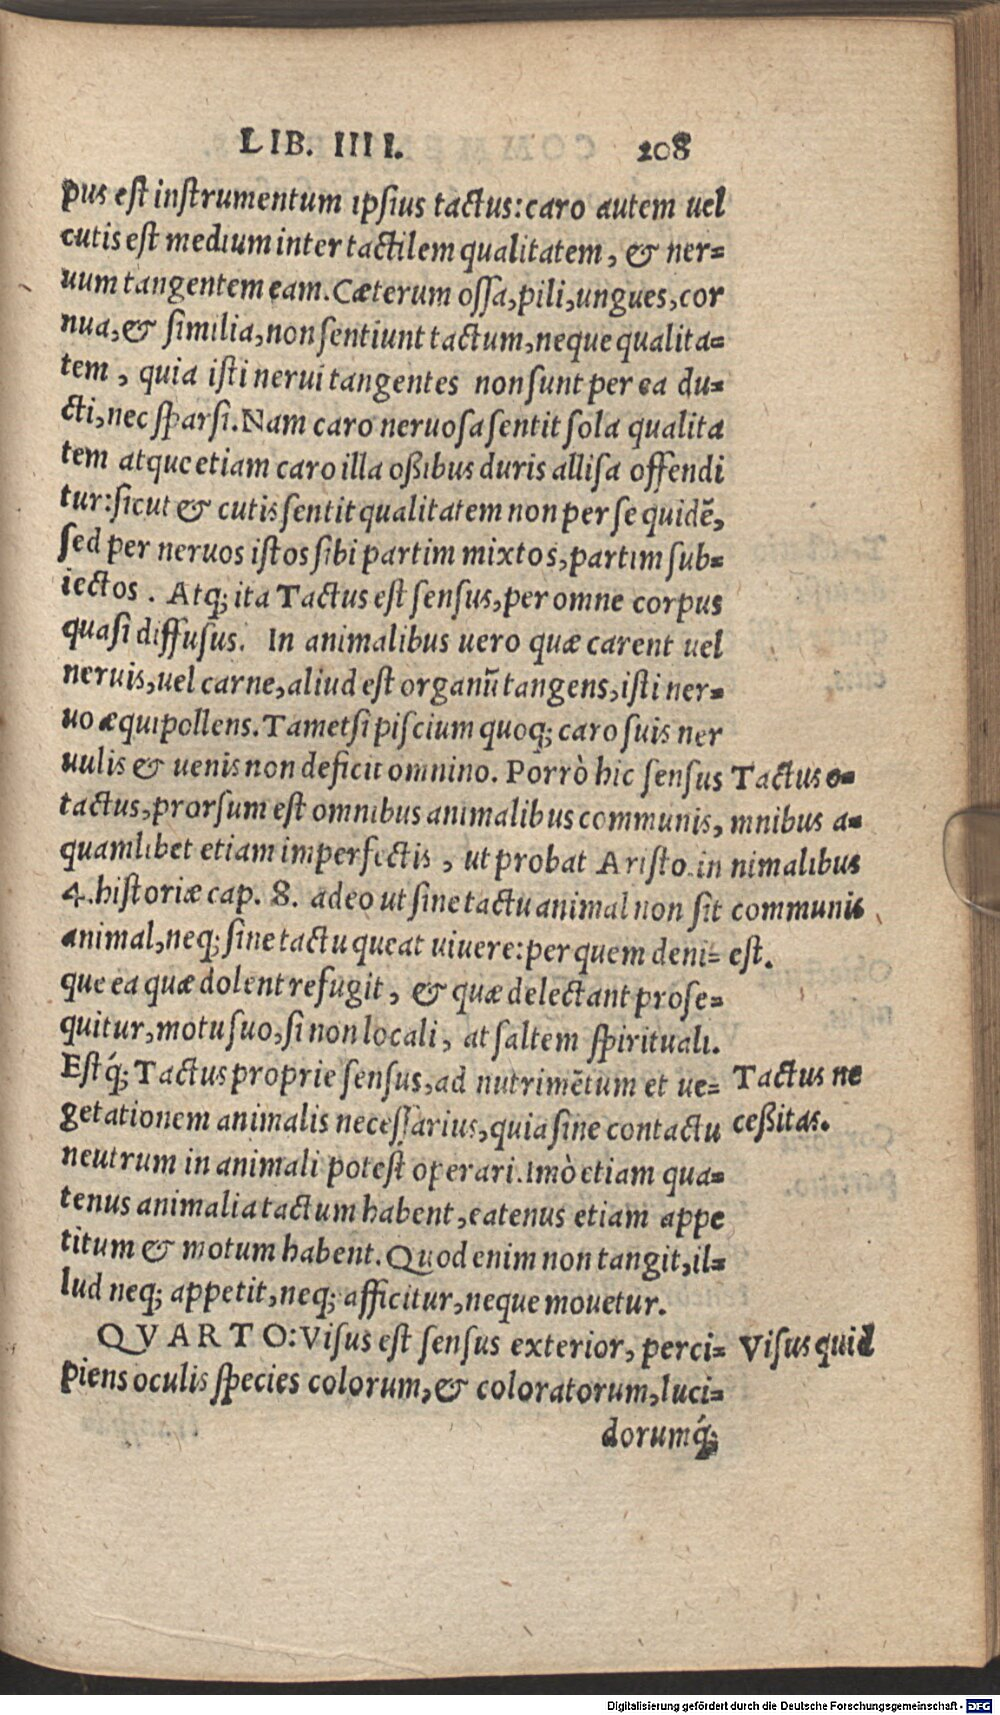 LIB. IIII. 208
pus est instrumentum ipsius tactus: caro autem uel
cutis est medium inter tactilem qualitatem, & ner=
uum tangentem eam. Cæterum ossa, pili, ungues, cor
nua, & similia, non sentiunt tactum, neque qualita=
tem, quia isti nerui tangentes non sunt per ea du=
cti, nec sparsi. Nam caro neruosa sentit sola qualita
tem atque etiam caro illa oßibus duris allisa offendi
tur: sicut & cutis sentit qualitatem non per se quidẽ,
sed per neruos istos sibi partim mixtos, partim sub=
iectos. Atq; ita Tactus est sensus, per omne corpus
quasi diffusus. In animalibus uero quæ carent uel
neruis, uel carne, aliud est organũ tangens, isti ner=
uo æquipollens. Tametsi piscium quoq; caro suis ner
uulis & uenis non deficit omnino. Porrò hic sensus
tactus, prorsum est omnibus animalibus communis,
quamlibet etiam imperfectis, ut probat Aristo. in
4. historiæ cap. 8. adeo ut sine tactu animal non sit
animal, neq; sine tactu queat uiuere: per quem deni=
que ea quæ dolent refugit, & quæ delectant prose=
quitur, motu suo, si non locali, at saltem spirituali.
Estq́; Tactus proprie sensus, ad nutrimẽtum et ue=
getationem animalis necessarius, quia sine contactu
neutrum in animali potest operari. Imò etiam qua=
tenus animalia tactum habent, eatenus etiam appe
titum & motum habent. Quod enim non tangit, il=
lud neq; appetit, neq; afficitur, neque mouetur.
QVARTO: Visus est sensus exterior, perci=
piens oculis species colorum, & coloratorum, luci=
dorumq́;
Tactus o=
mnibus a=
nimalibus
communis
est.
Tactus ne
ceßitas.
Visus quid
Digitalisierung gefördert durch die Deutsche Forschungsgemeinschaft - DFG